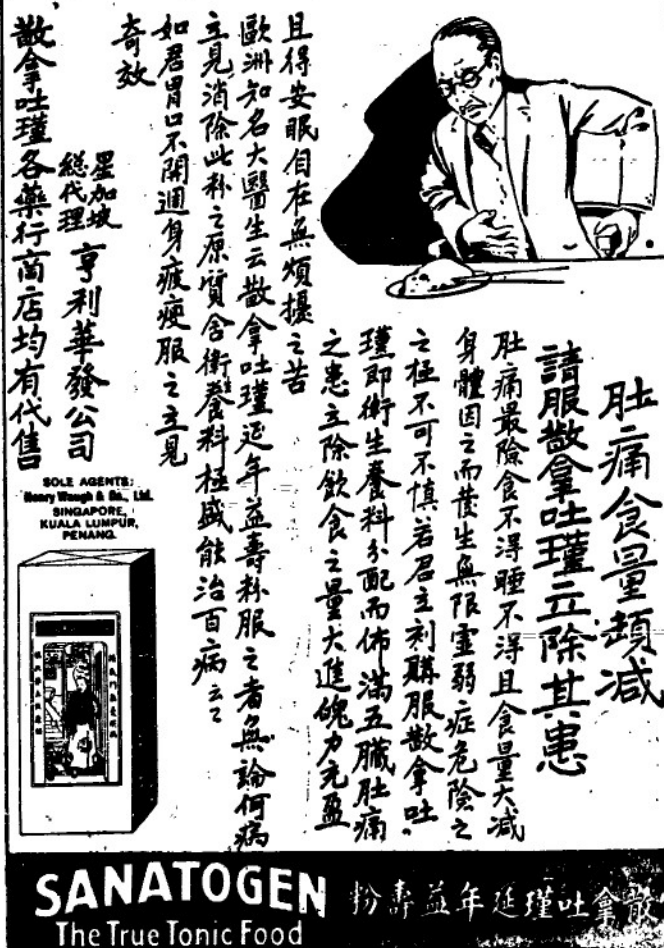 肚痛食量頓减
請服散拿吐瑾立除其患
肚痛最險食不得睡不得且食量大减
身體因之而發生無限虛弱症危險之
之極不可不慎若君立刻購服散拿吐
瑾即衛生養料分配而佈滿五臟肚痛
之患立除飲食之量大進魄力充盈
且得安眠自在無煩擾之苦
歐洲知名大醫生云散拿吐瑾延年益壽粉服之者無論何病
立見消除此粉之原質含衛養料極盛能治百病云云
如君胃口不開週身疲瘦服之立見
奇效
星加坡
總代理
亨利華發公司
散拿吐瑾各藥行商店均有代售
SOLE AGENTS:
Henry Waugh & Co., Ltd.
SINGAPORE,
KUALA LUMPUR,
PENANG.
SANATOGEN
The True Tonic Food
散拿吐瑾延年益壽粉